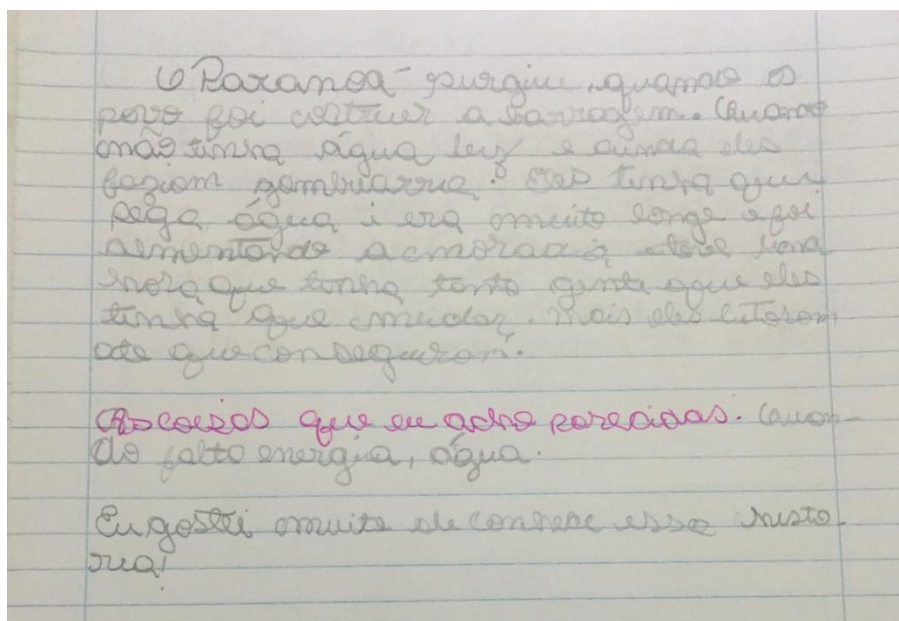 O Paranoá surgiu quando o
povo foi costruer a barragem. Quando
não tinha água luz e ainda eles
faziam gambiarria. Eles tinha que
pega água i era muito longe e foi
almentando a moradia teve uma
hora que tinha tanto gente que eles
tinha que mudar. mais eles lutaram
ate que conseguiram.
As coizas que eu acho parecidas. Quan-
do falta energia, água.
Eu gostei muito de conhece essa histo
ria!